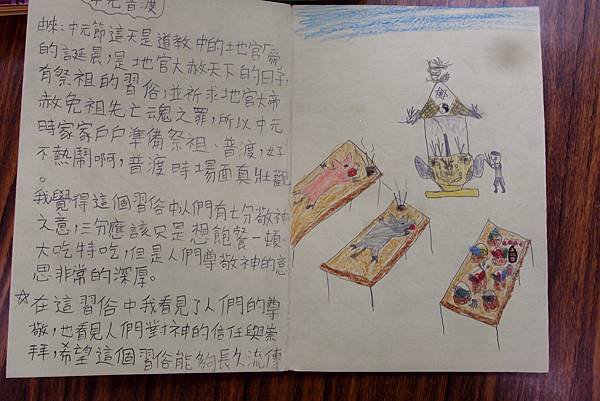 中元普渡
由來:中元節這天是道教中的地官(舜)
的誕晨,是地官大赦天下的日子,
有祭祖的習俗,並祈求地官大帝
赦免祖先亡魂之罪,所以中元
時家家戶戶準備祭祖、普渡,好
不熱鬧啊,普渡時場面真壯觀
。
我覺得這個習俗中人們有七分敬神
之意,三分應該只是想飽餐一頓、
大吃特吃,但是人們尊敬神的意
思非常的深厚。
☆在這習俗中我看見了人們的尊
敬,也看見人們對神的信任與崇
拜,希望這個習俗能夠長久流傳